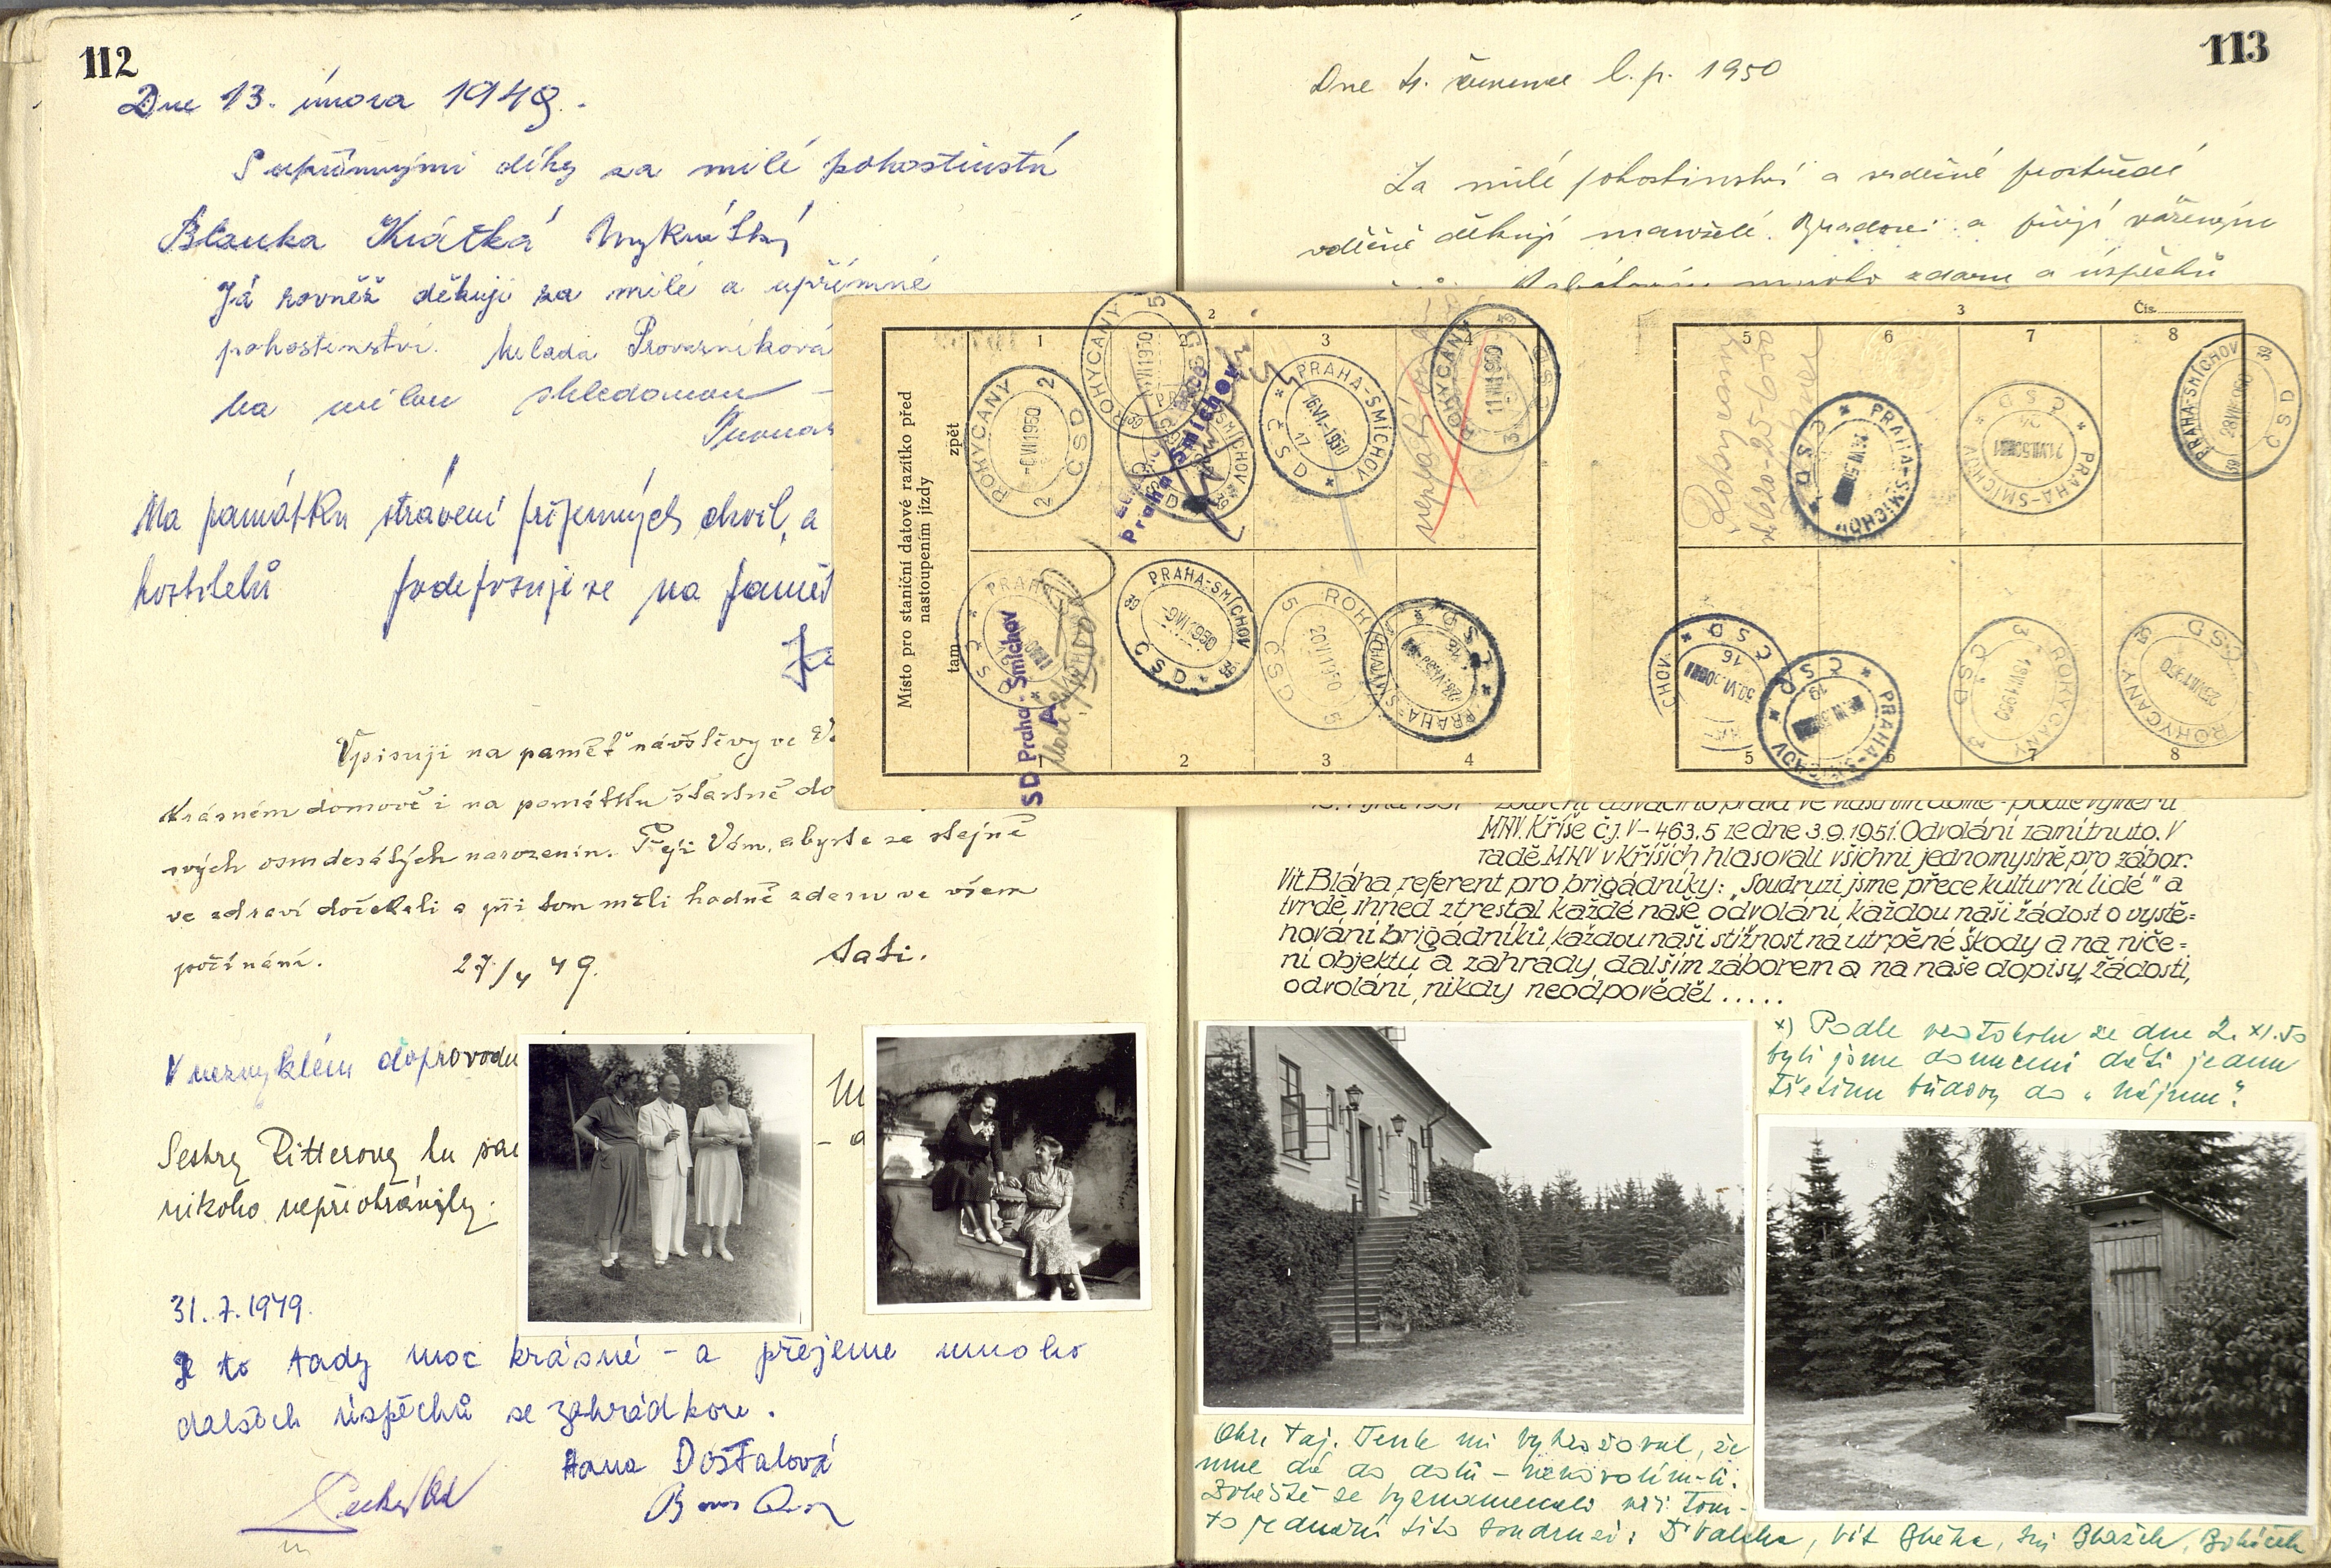 112
Dne 13. února 1949.
S upřímnými díky za milé pohostinství
Blanka Krátká
Já rovněž děkuji za milé a upřímné
pohostinství. Milada Provazníková
na milou shledanou
Na památku strávení příjemných chvil, a
hostitelů podepisuji se na paměť
Vpisuji na paměť návštěvy ve
krásném domově i na památku šťastně do
svých osmdesátých narozenin. Přeji Vám, abyste se stejně
ve zdraví dočekali a při tom měli hodně zdaru ve všem
počínání. 27/4 49. tati.
V nezvyklém doprovodu
Sestry Ritterovy tu
nikoho nepřiohránily.
31. 7. 1949.
Je to tady moc krásné – a přejeme mnoho
dalších úspěchů se zahrádkou.
Hana Dostalová
113
Dne 4. července l. p. 1950
Za milé pohostinství a srdečné prostředí
vděčně děkují manželé a přejí váženým
mnoho zdaru a úspěchů
2
Místo pro staniční datové razítko před
nastoupením jízdy
zpět
tam
1 2 3 4
ROKYCANY 2 ČSD 2
ROKYCANY
PRAHA-SMÍCHOV 16.VI.1950 17 ČSD
ROKYCANY ČSD
Praha Smíchov
ČSD Praha-Smíchov
PRAHA-SMÍCHOV 39 ČSD 39
ROKYCANY 5 ČSD 5
PRAHA-SMÍCHOV 16 ČSD
1 2 3 4
3
Čís.
5 6 7 8
PRAHA-SMÍCHOV ČSD
PRAHA-SMÍCHOV ČSD 24
PRAHA-SMÍCHOV 39 ČSD
16 ČSD
PRAHA-SMÍCHOV 19 ČSD
ROKYCANY 3 ČSD 3
ROKYCANY ČSD
5 6 7 8
MNV. Kříše č.j. V – 463.5 ze dne 3.9.1951. Odvolání zamítnuto. V
radě MNV v Kříších hlasovali všichni jednomyslně pro zábor.
Vít Bláha, referent pro brigádníky: „Soudruzi jsme přece kulturní lidé" a
tvrdě, ihned ztrestal každé naše odvolání, každou naši žádost o vystě=
hování brigádníků, každou naši stížnost na utrpěné škody a na niče=
ní objektu a zahrady, dalším záborem a na naše dopisy, žádosti,
odvolání, nikdy neodpověděl . . . . .
x) Podle protokolu ze dne 2. XI. 50
byli jsme donuceni dáti jednu
třetinu budovy do „nájmu".
Okr. taj. Tenk mi vyhrožoval, že
mne dá do dolů –
Zvláště se vyznamenali při tom-
to jednání tito soudruzi: Vít Bláha, Blažek,